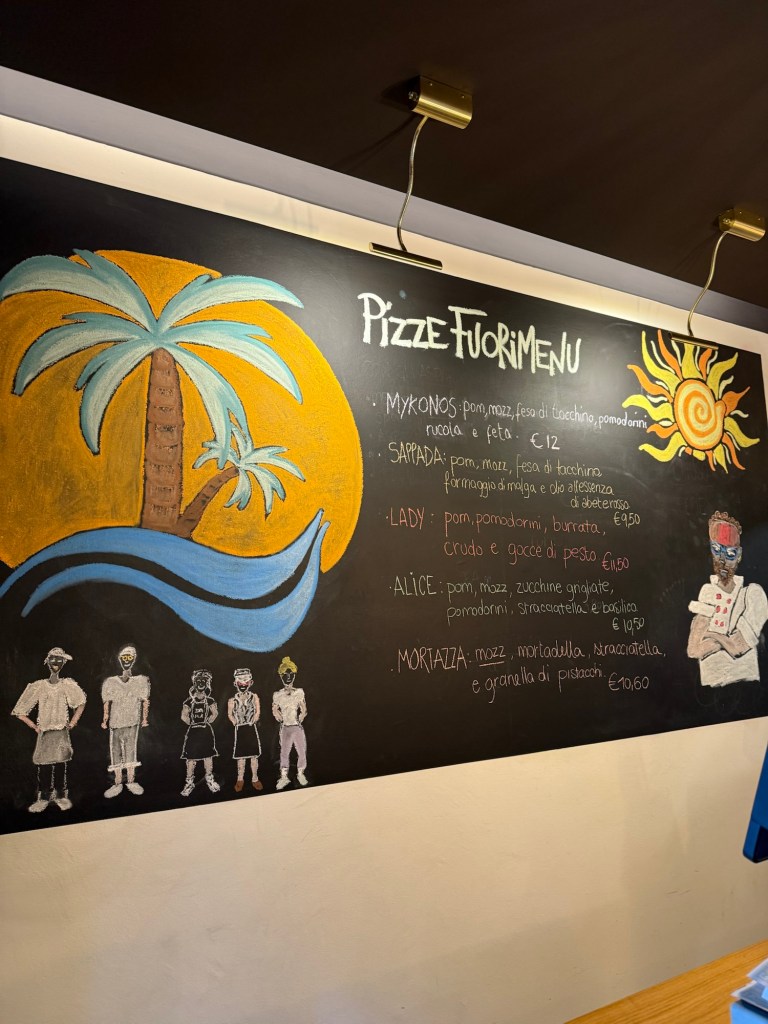 PIZZE FUORIMENU
· MYKONOS: pom, mozz, fesa di tacchino, pomodorini,
rucola e feta. €12
· SAPPADA: pom, mozz, fesa di tacchino
formaggio di malga e olio all'essenza
di abete rosso
€9,50
· LADY: pom, pomodorini, burrata,
crudo e gocce di pesto €11,50
· ALICE: pom, mozz, zucchine grigliate,
pomodorini, stracciatella e basilico
€10,50
· MORTAZZA: mozz, mortadella, stracciatella,
e granella di pistacchi. €10,60